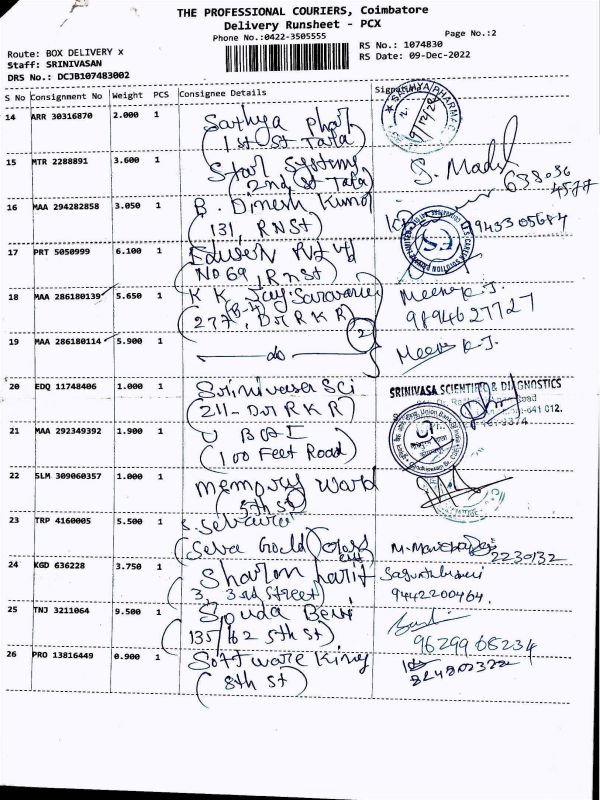 THE PROFESSIONAL COURIERS, Coimbatore
Delivery Runsheet - PCX
Phone No.:0422-3505555
Page No.:2
Route: BOX DELIVERY x
RS No.: 1074830
Staff: SRINIVASAN
RS Date: 09-Dec-2022
DRS No.: DCJB107483002
S No Consignment No Weight PCS Consignee Details Signature
14 ARR 30316870 2.000 1 Sathya phar
(1st St Tata)
15 MTR 2288891 3.600 1 Star Systems
(2nd St Tata)
638036
4577
16 MAA 294282858 3.050 1 B. Dinesh Kumar
(131, R N St)
943305684
17 PRT 5050999 6.100 1
(No 69, R n St)
18 MAA 286180139 5.650 1 K K Jay. Saravana
(277, Dr R K R)
Meena K.J.
9894627727
2
19 MAA 286180114 5.900 1 do
Meena K.J.
20 EDQ 11748406 1.000 1 Srinivasa Sci
(211- Dr R K R)
SRINIVASA SCIENTIFIC & DIAGNOSTICS
21 MAA 292349392 1.900 1 U B O I
(100 Feet Road)
22 SLM 309060357 1.000 1 memory world
(5th St)
23 TRP 4160005 5.500 1 S. Selvaraj
(Selva Gold
2230132
24 KGD 636228 3.750 1 Sharon
(3, 3rd Street)
9442200464.
25 TNJ 3211064 9.500 1 Souda Bevi
(135/162 5th St)
9629968234
26 PRO 13816449 0.900 1 Software King
(8th St)